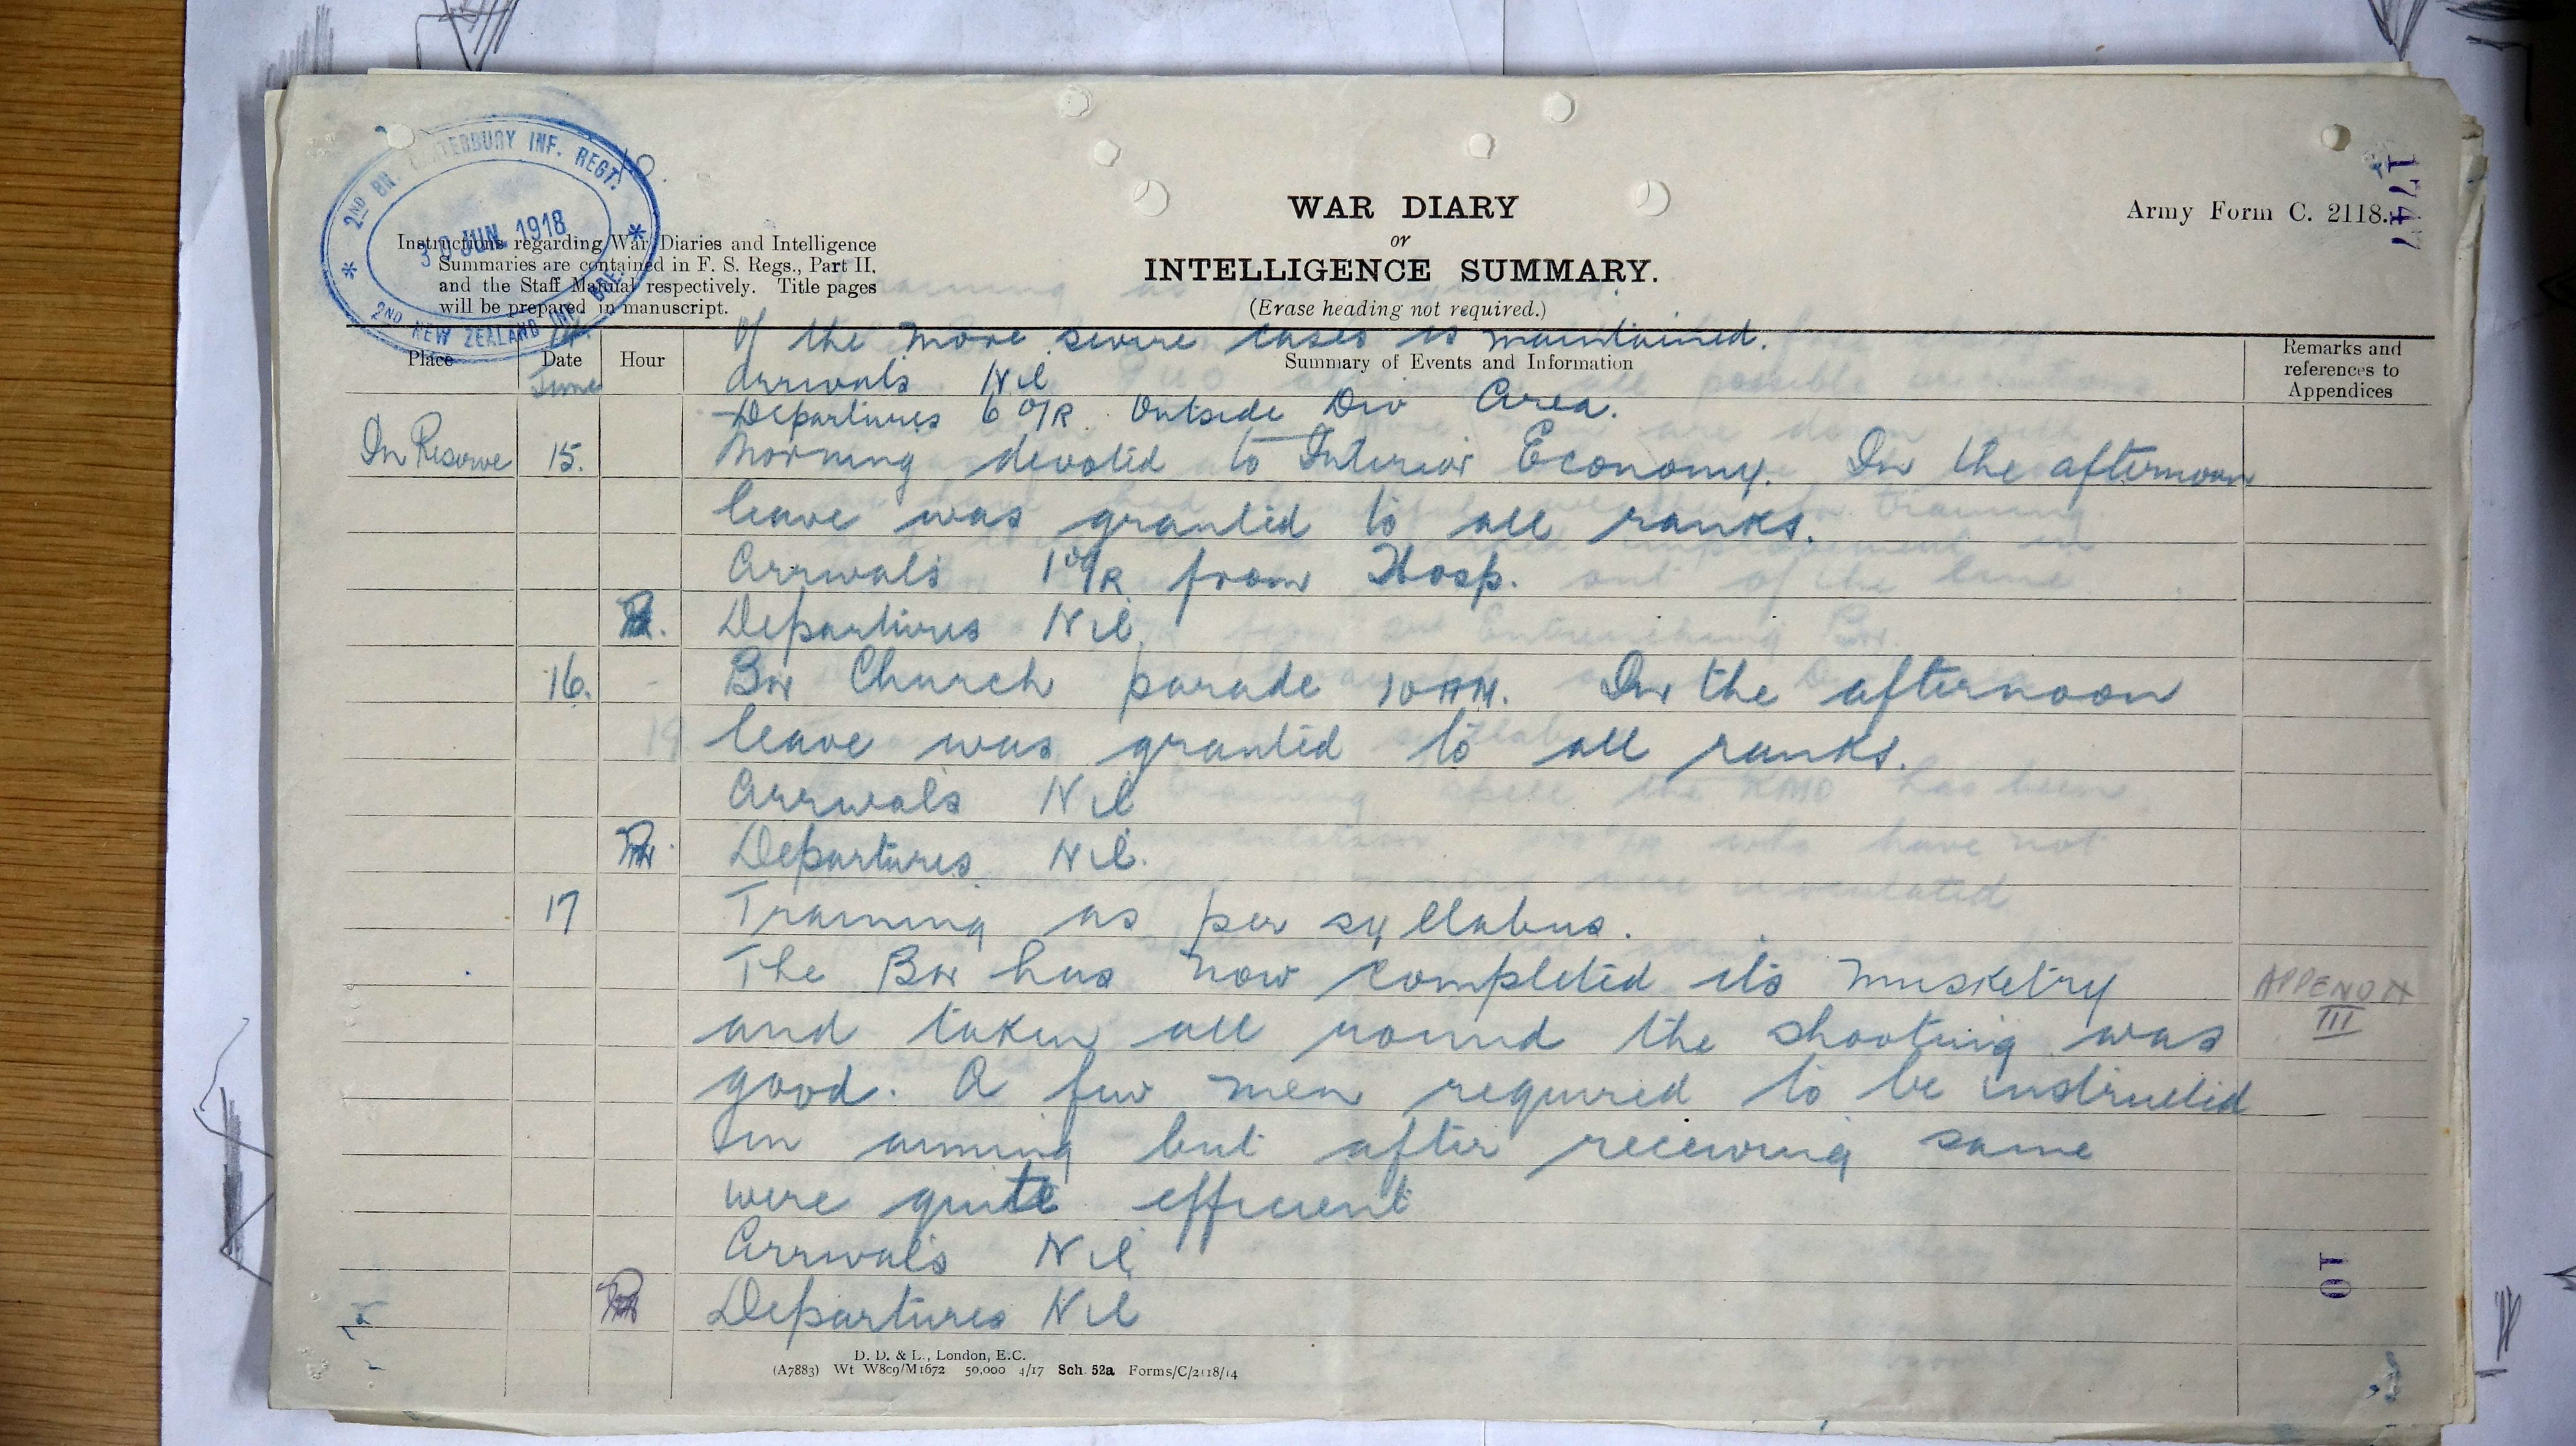 2ND BN. CANTERBURY INF. REGT.
30 JUN. 1918
2ND NEW ZEALAND INF. BDE.
1747
WAR DIARY
or
INTELLIGENCE SUMMARY.
(Erase heading not required.)
Army Form C. 2118.
Instructions regarding War Diaries and Intelligence
Summaries are contained in F. S. Regs., Part II.
and the Staff Manual respectively. Title pages
will be prepared in manuscript.
Place Date Hour Summary of Events and Information Remarks and references to Appendices
June
of the more severe cases is maintained.
Arrivals Nil
Departures 6 O/R. Outside Div Area.
In Reserve 15. Morning devoted to Interior Economy. In the afternoon
leave was granted to all ranks.
Arrivals 1 O/R from Hosp.
Departures Nil.
16. Bn Church parade 10 AM. In the afternoon
leave was granted to all ranks.
Arrivals Nil
Departures Nil.
17 Training as per syllabus.
The Bn has now completed its musketry APPENDIX
and taken all round the shooting was III
good. A few men required to be instructed
in aiming but after receiving same
were quite efficient
Arrivals Nil
Departures Nil
10
D. D. & L., London, E.C.
(A7883) Wt W809/M1672 50,000 4/17 Sch. 52a Forms/C/2118/14